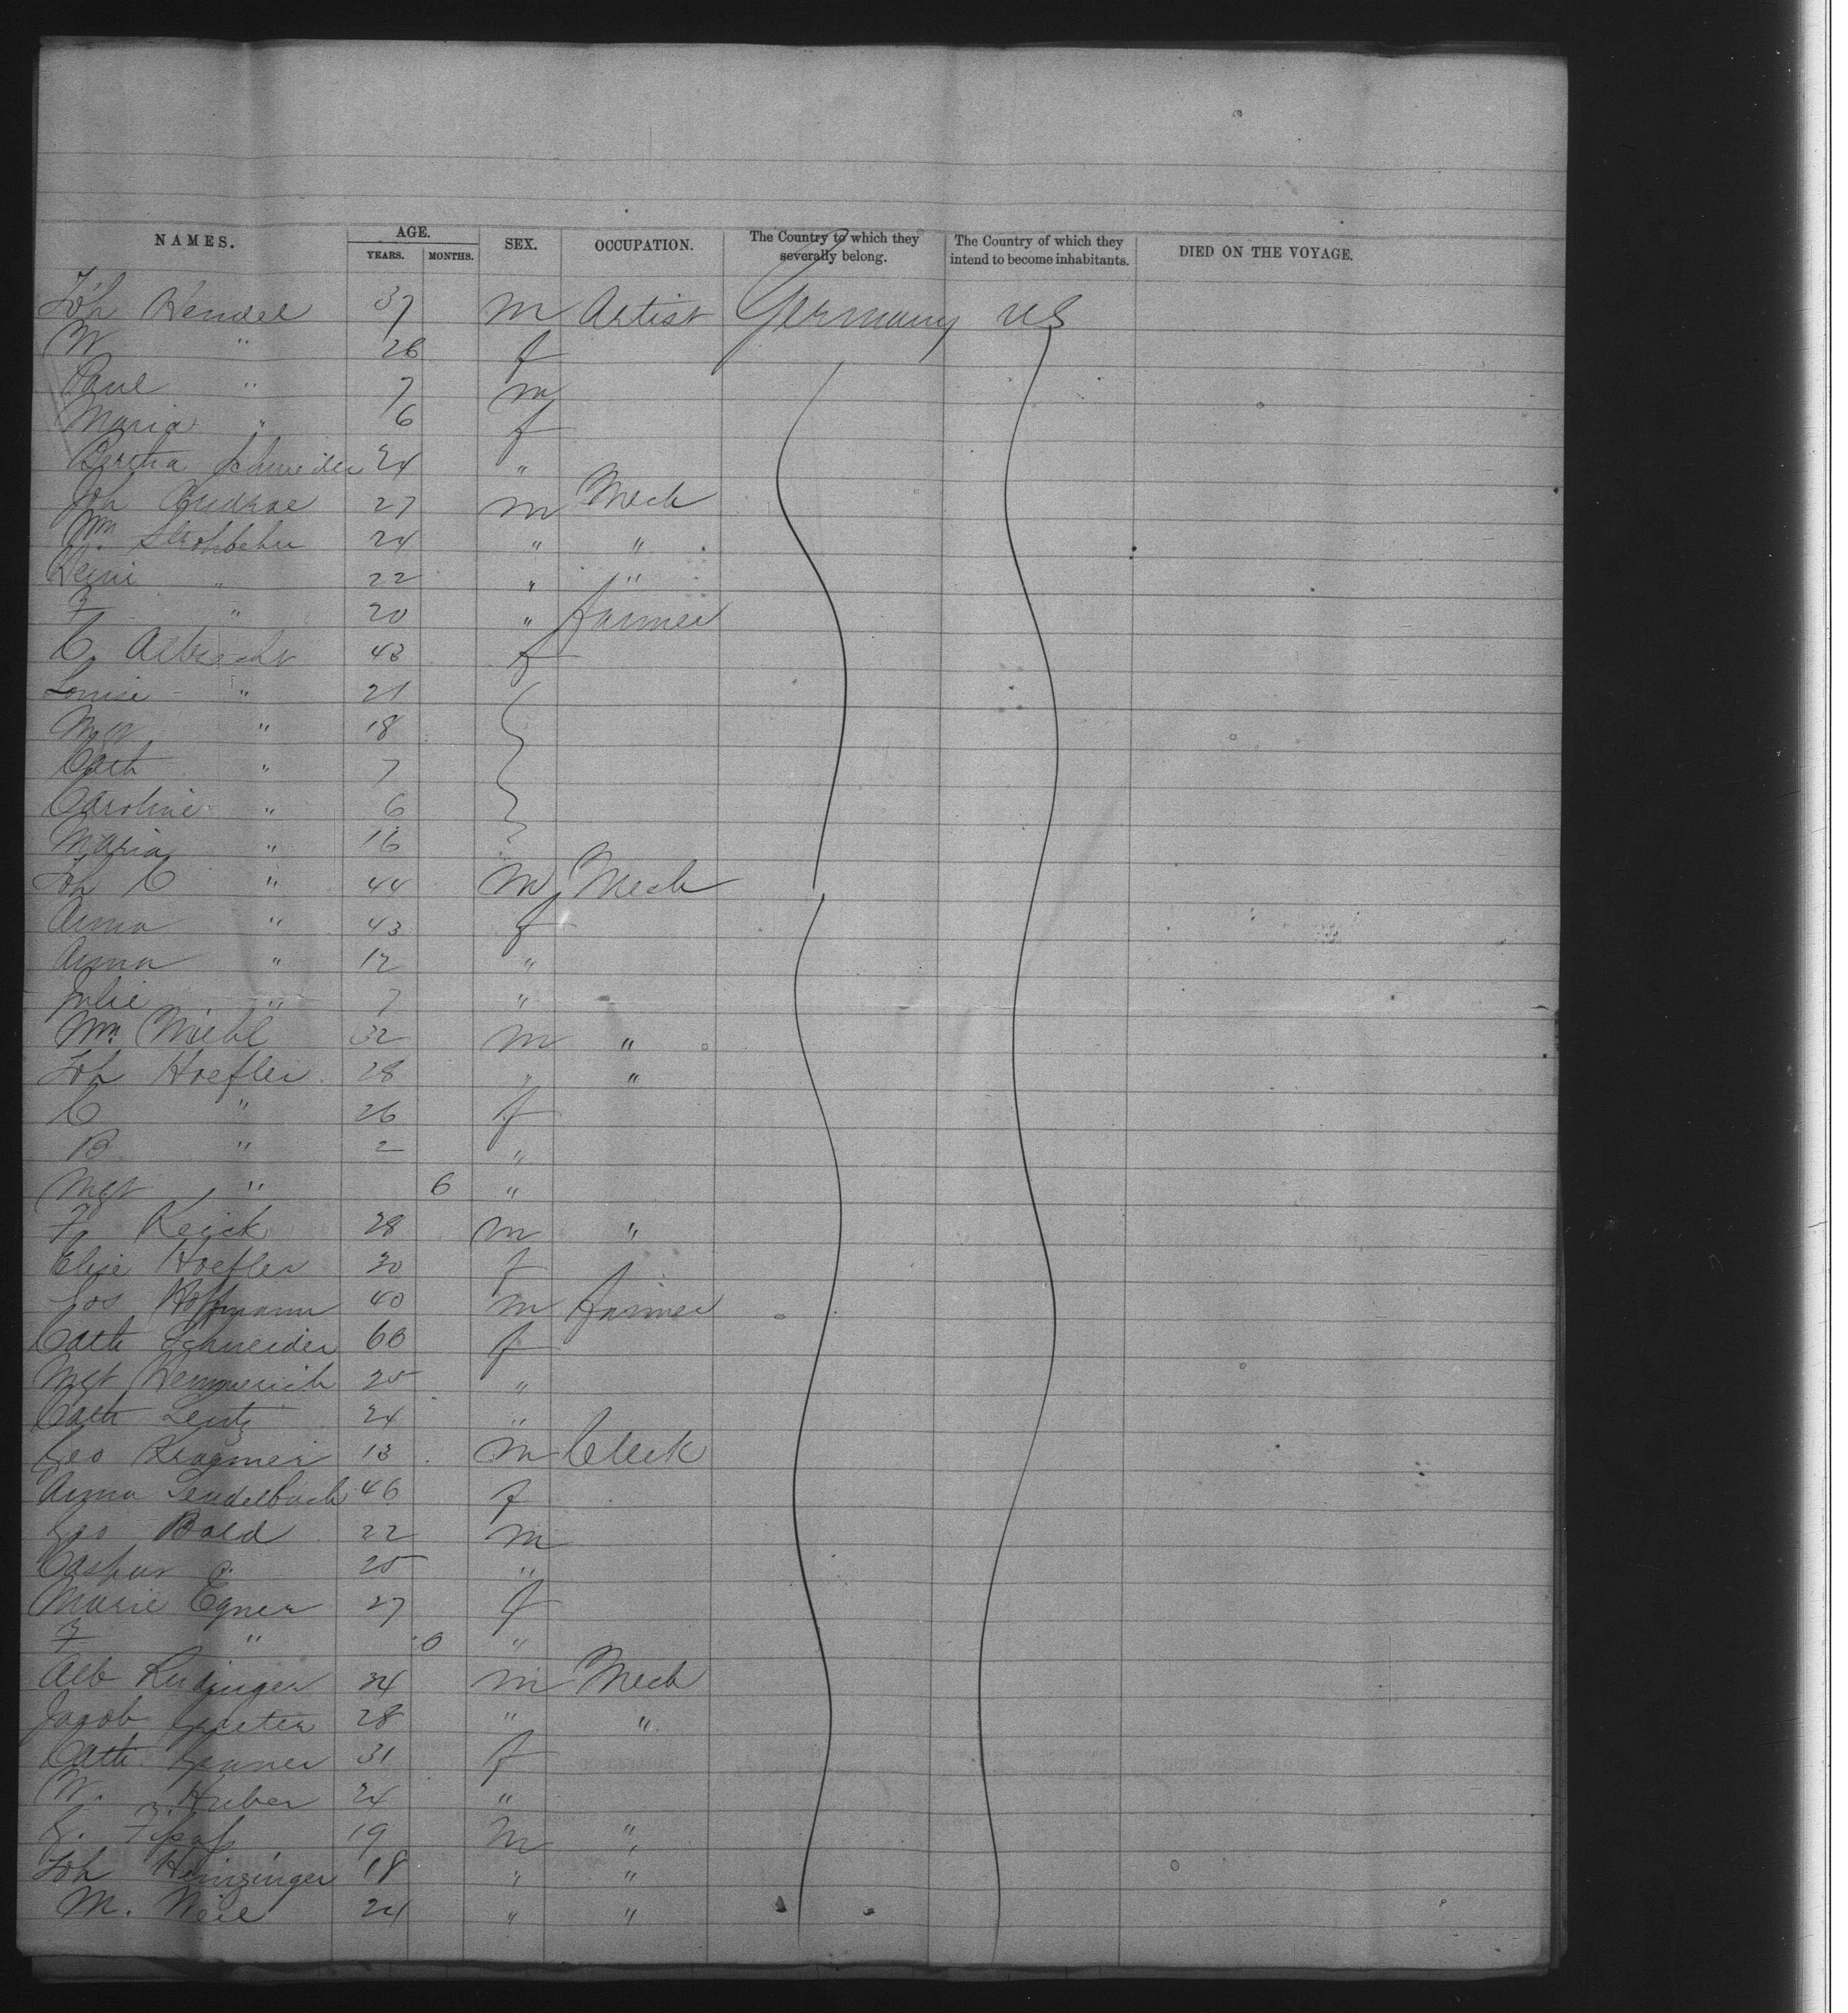 NAMES. AGE. SEX. OCCUPATION. The Country to which they severally belong. The Country of which they intend to become inhabitants. DIED ON THE VOYAGE.
YEARS. MONTHS.
Joh Hendel 37 m Artist Germany US
W " 26 f
Paul " 7 m
Maria " 6 f
Bertha Schneider 24 "
Joh 27 m Mech
Wm Strohbehn 24 " "
Heini " 22 " "
F " 20 " Farmer
C. Albrecht 43 f
Louise " 21
Mgt " 18
Cath " 7
Caroline " 6
Maria " 16
Joh C " 44 m Mech
Anna " 43 f
Anna " 12 "
Julie " 7 "
Wm Miehl 32 m "
Joh Hoefler 28 " "
C " 26 f
B " 2 "
Mgt " 6 "
F. Keick 28 m "
Elise Hoefler 30 f
Geo Hoffmann 40 m Farmer
Cath Schneider 60 f
Mgt Hemmerich 25 "
Cath Lentz 24 "
Geo 13 m Clerk
Anna Lendelbach 46 f
Geo Bald 22 m
Caspar " 25 "
Marie Egner 27 f
F " "
Alb Rudinger 34 m Mech
Jacob 28 " "
Cath 31 f
W. Huber 24 "
G. 19 m "
Joh Heinzinger 18 " "
M. Weil 24 " "